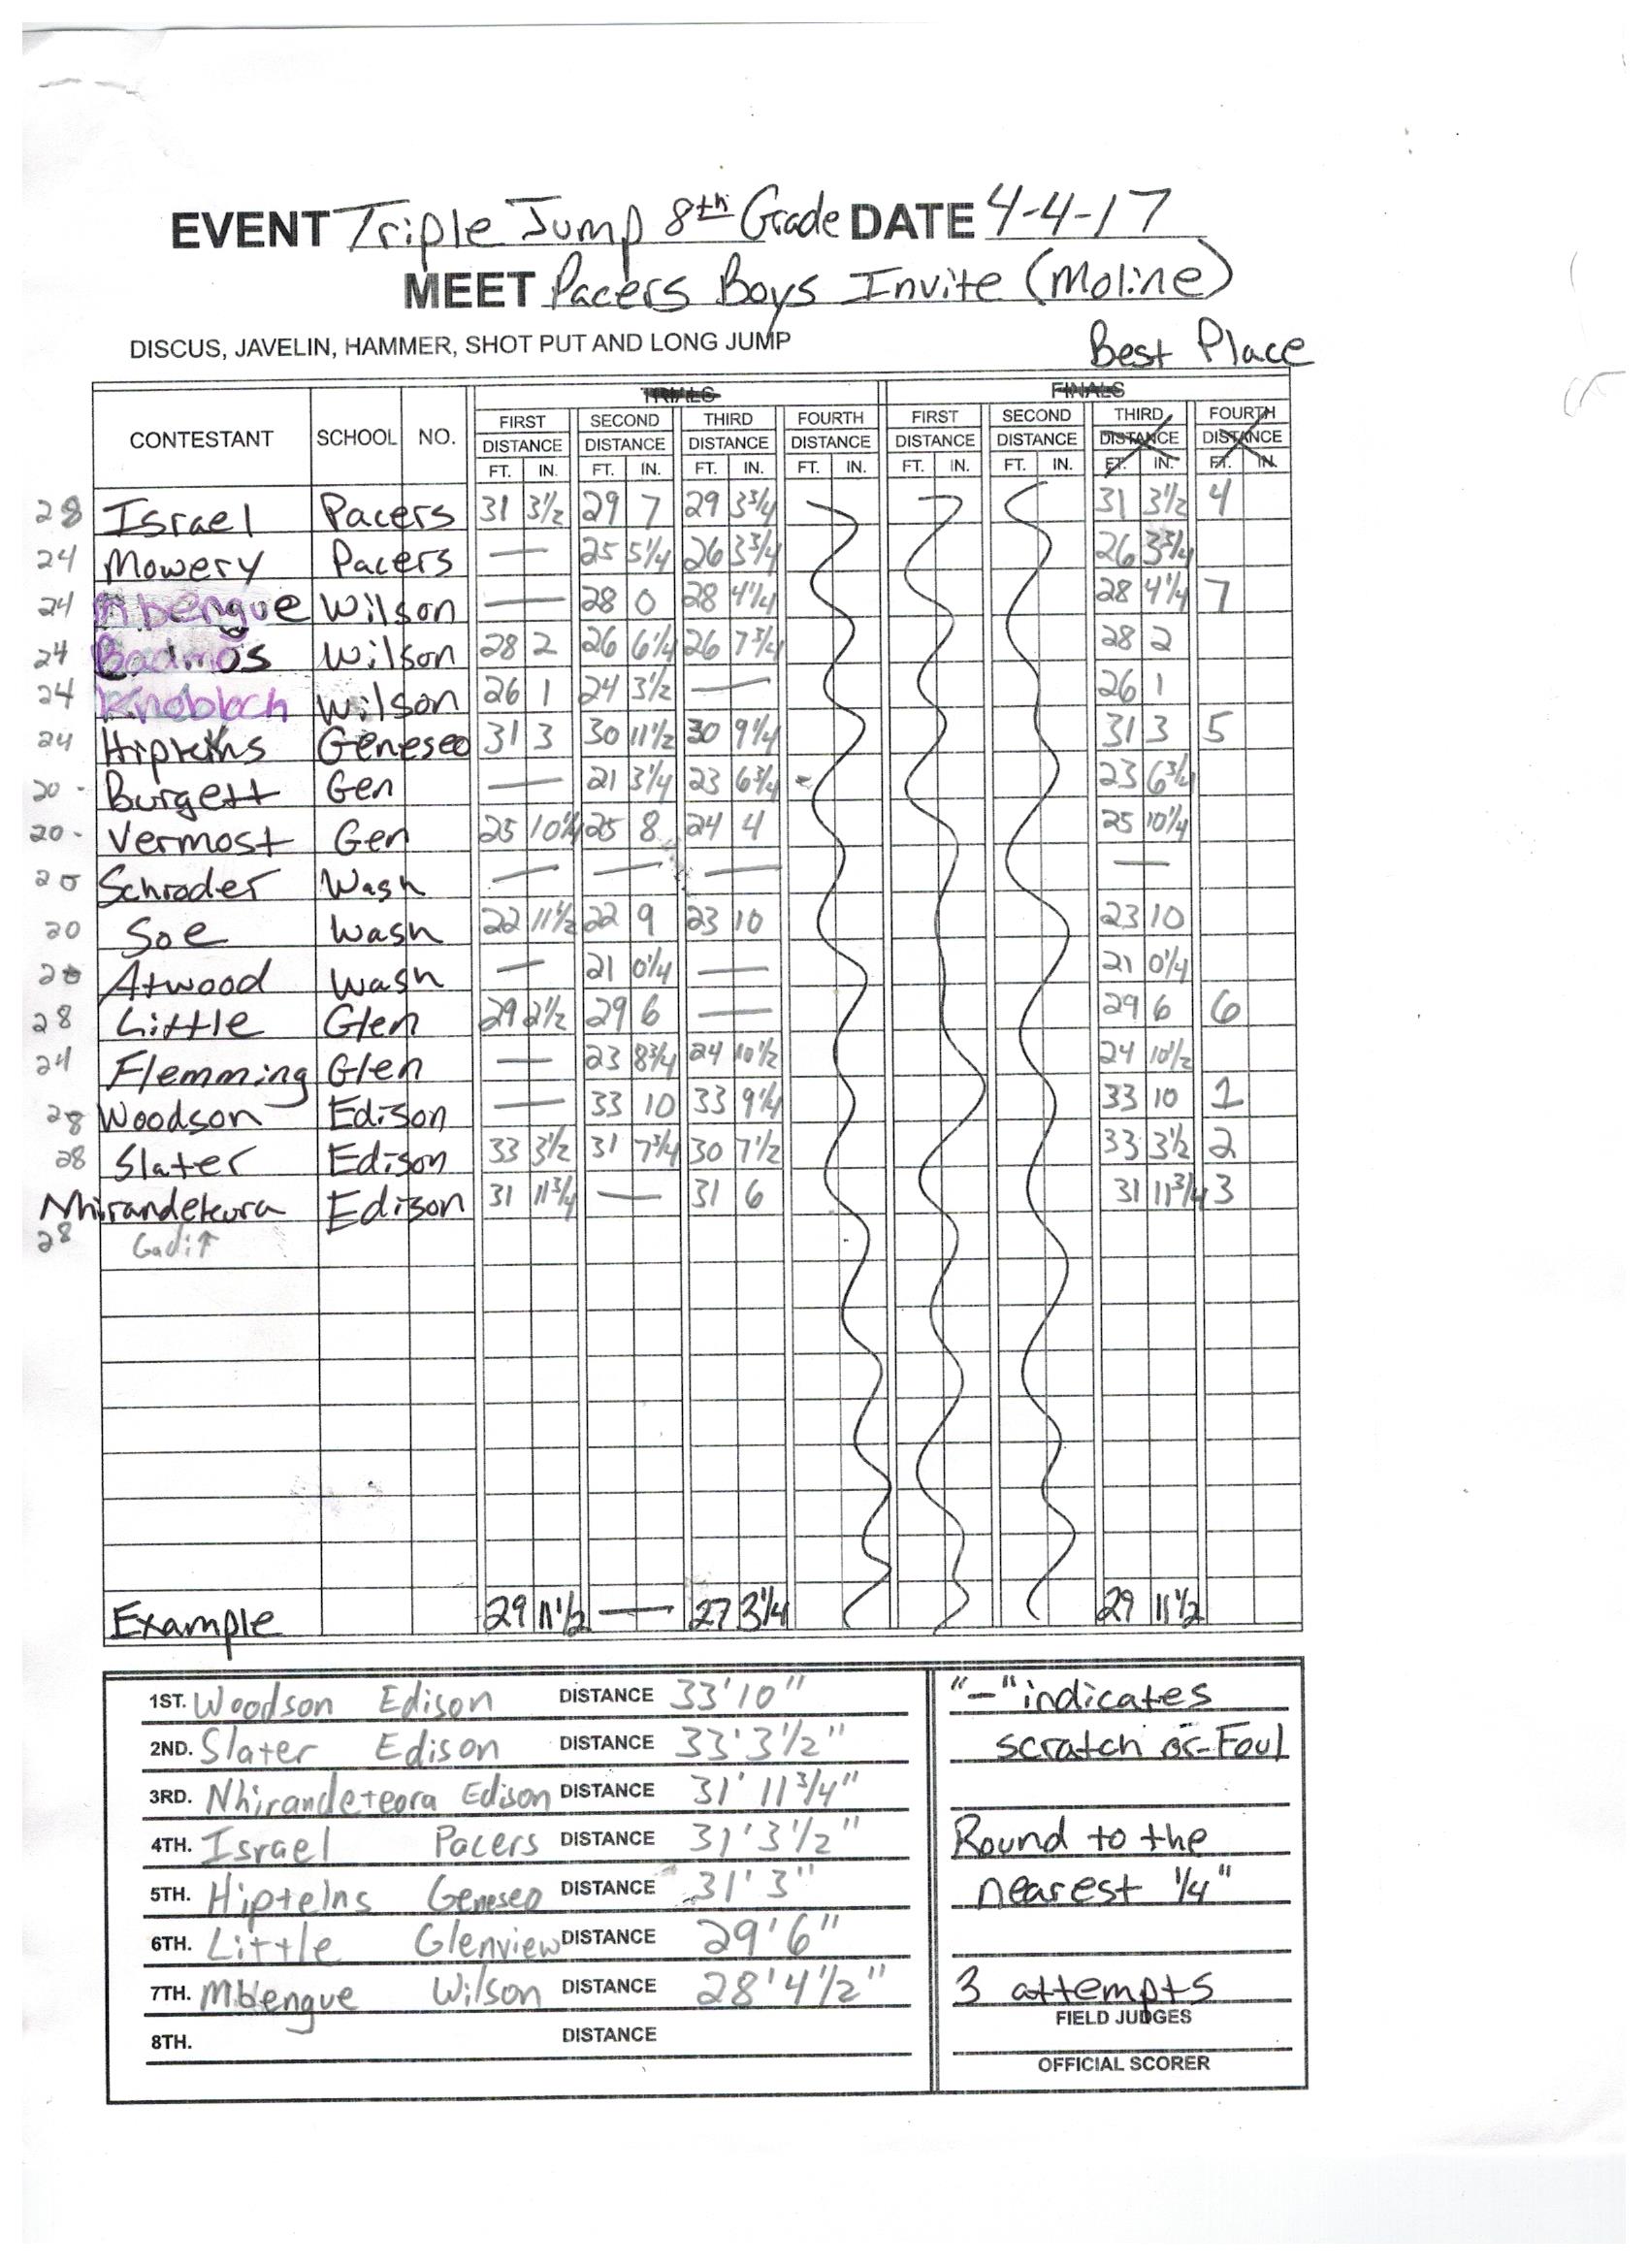 EVENT Triple Jump 8th Grade DATE 4-4-17
MEET Pacers Boys Invite (Moline)
DISCUS, JAVELIN, HAMMER, SHOT PUT AND LONG JUMP
Best Place
TRIALS FINALS
CONTESTANT SCHOOL NO. FIRST SECOND THIRD FOURTH FIRST SECOND THIRD FOURTH
DISTANCE DISTANCE DISTANCE DISTANCE DISTANCE DISTANCE DISTANCE DISTANCE
FT. IN. FT. IN. FT. IN. FT. IN. FT. IN. FT. IN. FT. IN. FT. IN.
28 Israel Pacers 31 3 1/2 29 7 29 3 3/4 31 3 1/2 4
24 Mowery Pacers — 25 5 1/4 26 3 3/4 26 3 3/4
24 Mbengue Wilson — 28 0 28 4 1/4 28 4 1/4 7
24 Badmos Wilson 28 2 26 6 1/4 26 7 3/4 28 2
24 Knobloch Wilson 26 1 24 3 1/2 — 26 1
24 Geneseo 31 3 30 11 1/2 30 9 1/4 31 3 5
20 - Burgett Gen — 21 3 1/4 23 6 3/4 23 6 3/4
20 - Vermost Gen 25 10 1/4 25 8 24 4 25 10 1/4
20 Schroder Wash — — — —
20 Soe Wash 22 11 1/2 22 9 23 10 23 10
20 Atwood Wash — 21 0 1/4 — 21 0 1/4
28 Little Glen 29 2 1/2 29 6 — 29 6 6
24 Flemming Glen — 23 8 3/4 24 10 1/2 24 10 1/2
28 Woodson Edison — 33 10 33 9 1/4 33 10 1
28 Slater Edison 33 3 1/2 31 7 3/4 30 7 1/2 33 3 1/2 2
Nhirandeteora Edison 31 11 3/4 — 31 6 31 11 3/4 3
28 Gadi↑
Example 29 11 1/2 — 27 3 1/4 29 11 1/2
1ST. Woodson Edison DISTANCE 33'10"
2ND. Slater Edison DISTANCE 33'3 1/2"
3RD. Nhirandeteora Edison DISTANCE 31' 11 3/4"
4TH. Israel Pacers DISTANCE 31'3 1/2"
5TH. Hiptelns Geneseo DISTANCE 31'3"
6TH. Little Glenview DISTANCE 29'6"
7TH. Mbengue Wilson DISTANCE 28'4 1/2"
8TH. DISTANCE
"—" indicates
scratch or Foul
Round to the
nearest 1/4"
3 attempts
FIELD JUDGES
OFFICIAL SCORER